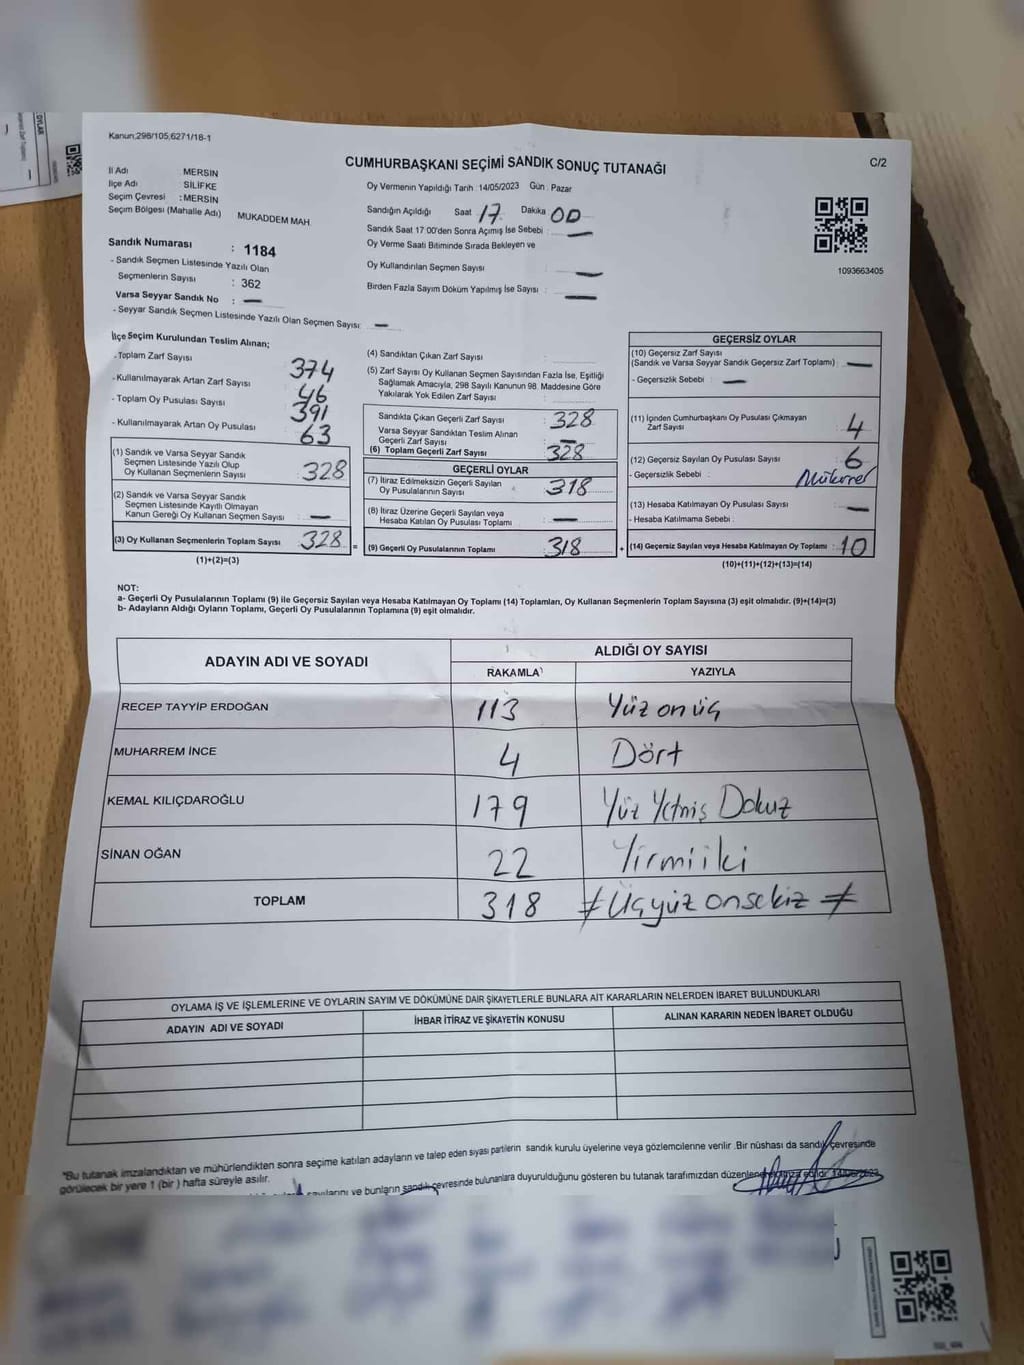 Kanun;298/105;6271/18-1
CUMHURBAŞKANI SEÇİMİ SANDIK SONUÇ TUTANAĞI
C/2
İl Adı MERSİN
İlçe Adı SİLİFKE
Seçim Çevresi :MERSİN
Seçim Bölgesi (Mahalle Adı) MUKADDEM MAH.
Sandık Numarası : 1184
- Sandık Seçmen Listesinde Yazılı Olan
Seçmenlerin Sayısı : 362
Varsa Seyyar Sandık No : —
- Seyyar Sandık Seçmen Listesinde Yazılı Olan Seçmen Sayısı: —
Oy Vermenin Yapıldığı Tarih 14/05/2023 Gün Pazar
Sandığın Açıldığı Saat 17 Dakika 00
Sandık Saat 17 00'den Sonra Açımış İse Sebebi : —
Oy Verme Saati Bitiminde Sırada Bekleyen ve
Oy Kullandırılan Seçmen Sayısı : —
Birden Fazla Sayım Döküm Yapılmış İse Sayısı : —
1093663405
İlçe Seçim Kurulundan Teslim Alınan;
-Toplam Zarf Sayısı 374
-Kullanılmayarak Artan Zarf Sayısı 46
- Toplam Oy Pusulası Sayısı 391
- Kullanılmayarak Artan Oy Pusulası 63
(1) Sandık ve Varsa Seyyar Sandık
Seçmen Listesinde Yazılı Olup
Oy Kullanan Seçmenlerin Sayısı : 328
(2) Sandık ve Varsa Seyyar Sandık
Seçmen Listesinde Kayıtlı Olmayan
Kanun Gereği Oy Kullanan Seçmen Sayısı : —
(3) Oy Kullanan Seçmenlerin Toplam Sayısı : 328 =
(1)+(2)=(3)
(4) Sandıktan Çıkan Zarf Sayısı :
(5) Zarf Sayısı Oy Kullanan Seçmen Sayısından Fazla İse, Eşitliği
Sağlamak Amacıyla, 298 Sayılı Kanunun 98. Maddesine Göre
Yakılarak Yok Edilen Zarf Sayısı :
Sandıkta Çıkan Geçerli Zarf Sayısı : 328
Varsa Seyyar Sandıktan Teslim Alınan
Geçerli Zarf Sayısı : —
(6) Toplam Geçerli Zarf Sayısı : 328
GEÇERLİ OYLAR
(7) İtiraz Edilmeksizin Geçerli Sayılan
Oy Pusulalarının Sayısı : 318
(8) İtiraz Üzerine Geçerli Sayılan veya
Hesaba Katılan Oy Pusulası Toplamı : —
(9) Geçerli Oy Pusulalarının Toplamı : 318 +
GEÇERSİZ OYLAR
(10) Geçersiz Zarf Sayısı
(Sandık ve Varsa Seyyar Sandık Geçersiz Zarf Toplamı) : —
- Geçersizlik Sebebi : —
(11) İçinden Cumhurbaşkanı Oy Pusulası Çıkmayan
Zarf Sayısı : 4
(12) Geçersiz Sayılan Oy Pusulası Sayısı : 6
- Geçersizlik Sebebi : Mükerrer
(13) Hesaba Katılmayan Oy Pusulası Sayısı : —
- Hesaba Katılmama Sebebi :
(14) Geçersiz Sayılan veya Hesaba Katılmayan Oy Toplamı : 10
(10)+(11)+(12)+(13)=(14)
NOT:
a- Geçerli Oy Pusulalarının Toplamı (9) ile Geçersiz Sayılan veya Hesaba Katılmayan Oy Toplamı (14) Toplamları, Oy Kullanan Seçmenlerin Toplam Sayısına (3) eşit olmalıdır. (9)+(14)=(3)
b- Adayların Aldığı Oyların Toplamı, Geçerli Oy Pusulalarının Toplamına (9) eşit olmalıdır.
ADAYIN ADI VE SOYADI ALDIĞI OY SAYISI
RAKAMLA YAZIYLA
RECEP TAYYİP ERDOĞAN 113 Yüz on üç
MUHARREM İNCE 4 Dört
KEMAL KILIÇDAROĞLU 179 Yüz Yetmiş Dokuz
SİNAN OĞAN 22 Yirmi iki
TOPLAM 318 ≠ Üçyüz onsekiz ≠
OYLAMA İŞ VE İŞLEMLERİNE VE OYLARIN SAYIM VE DÖKÜMÜNE DAİR ŞİKAYETLERLE BUNLARA AİT KARARLARIN NELERDEN İBARET BULUNDUKLARI
ADAYIN ADI VE SOYADI İHBAR İTİRAZ VE ŞİKAYETİN KONUSU ALINAN KARARIN NEDEN İBARET OLDUĞU
"Bu tutanak imzalandıktan ve mühürlendikten sonra seçime katılan adayların ve talep eden siyasi partilerin sandık kurulu üyelerine veya gözlemcilerine verilir .Bir nüshası da sandık çevresinde
görülecek bir yere 1 (bir ) hafta süreyle asılır.
sayılarını ve bunların sandık çevresinde bulunanlara duyurulduğunu gösteren bu tutanak tarafımızdan